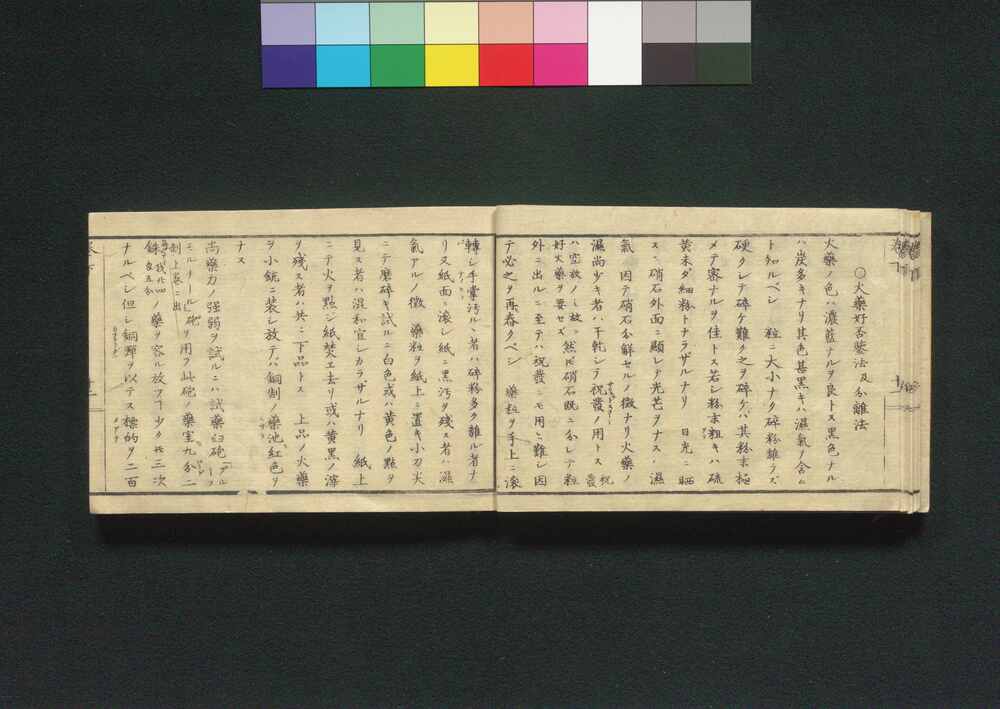 ○火藥好否鍳法及分離法
火藥ノ色ハ濃藍ナルヲ良トス黒色ナル
ハ炭多キナリ其色甚黒キハ濕氣ヲ含ム
ト知ルベシ 粒ニ大小ナク碎粉雜ラズ
硬クシテ碎ケ難ク之ヲ碎ケバ其粉末極
メテ密ナルヲ佳トス若シ粉末粗キハ硫
黄未ダ細粉トナラザルナリ 日光ニ晒
スニ硝石外面ニ顯レテ光芒ヲナスハ濕
氣ニ因テ硝石分解セルノ徴ナリ火藥ノ
濕尚少キ者ハ干乾シテ祝發ノ用トス 祝發
ハ空放ノミ放ツ然𪜈硝石既ニ分レテ粒
好火藥ヲ要セズ
外ニ出ルニ至テハ祝發ニモ用ヒ難シ因
テ必之ヲ再舂クベシ 藥粒ヲ手上ニ滾
轉シ手掌汚ルヽ者ハ碎粉多ク雜ル者ナ
リ又紙面ニ滾シ紙ニ黒汚ヲ殘ス者ハ濕
氣アルノ徴 藥粒ヲ紙上ニ置キ小刀尖
ニテ磨碎キ試ルニ白色或ハ黄色ノ點ヲ
見ス者ハ混和宜シカラザルナリ 紙上
ニテ火ヲ點ジ紙焚エ去リ或ハ黄黒ノ滓
ヲ殘ス者ハ共ニ下品トス 上品ノ火藥
ヲ小銃ニ装シ放テハ銅制ノ藥池紅色ヲ
ナス
尚藥力ノ强弱ヲ試ルニハ試藥臼砲
モルチール砲ヲ用フ此砲ノ藥室九分二
制上巻ニ出
ノ藥ヲ容ル放ツコ少ク𪜈三次
ナルベシ但シ銅彈ヲ以テス標的ヲ二百